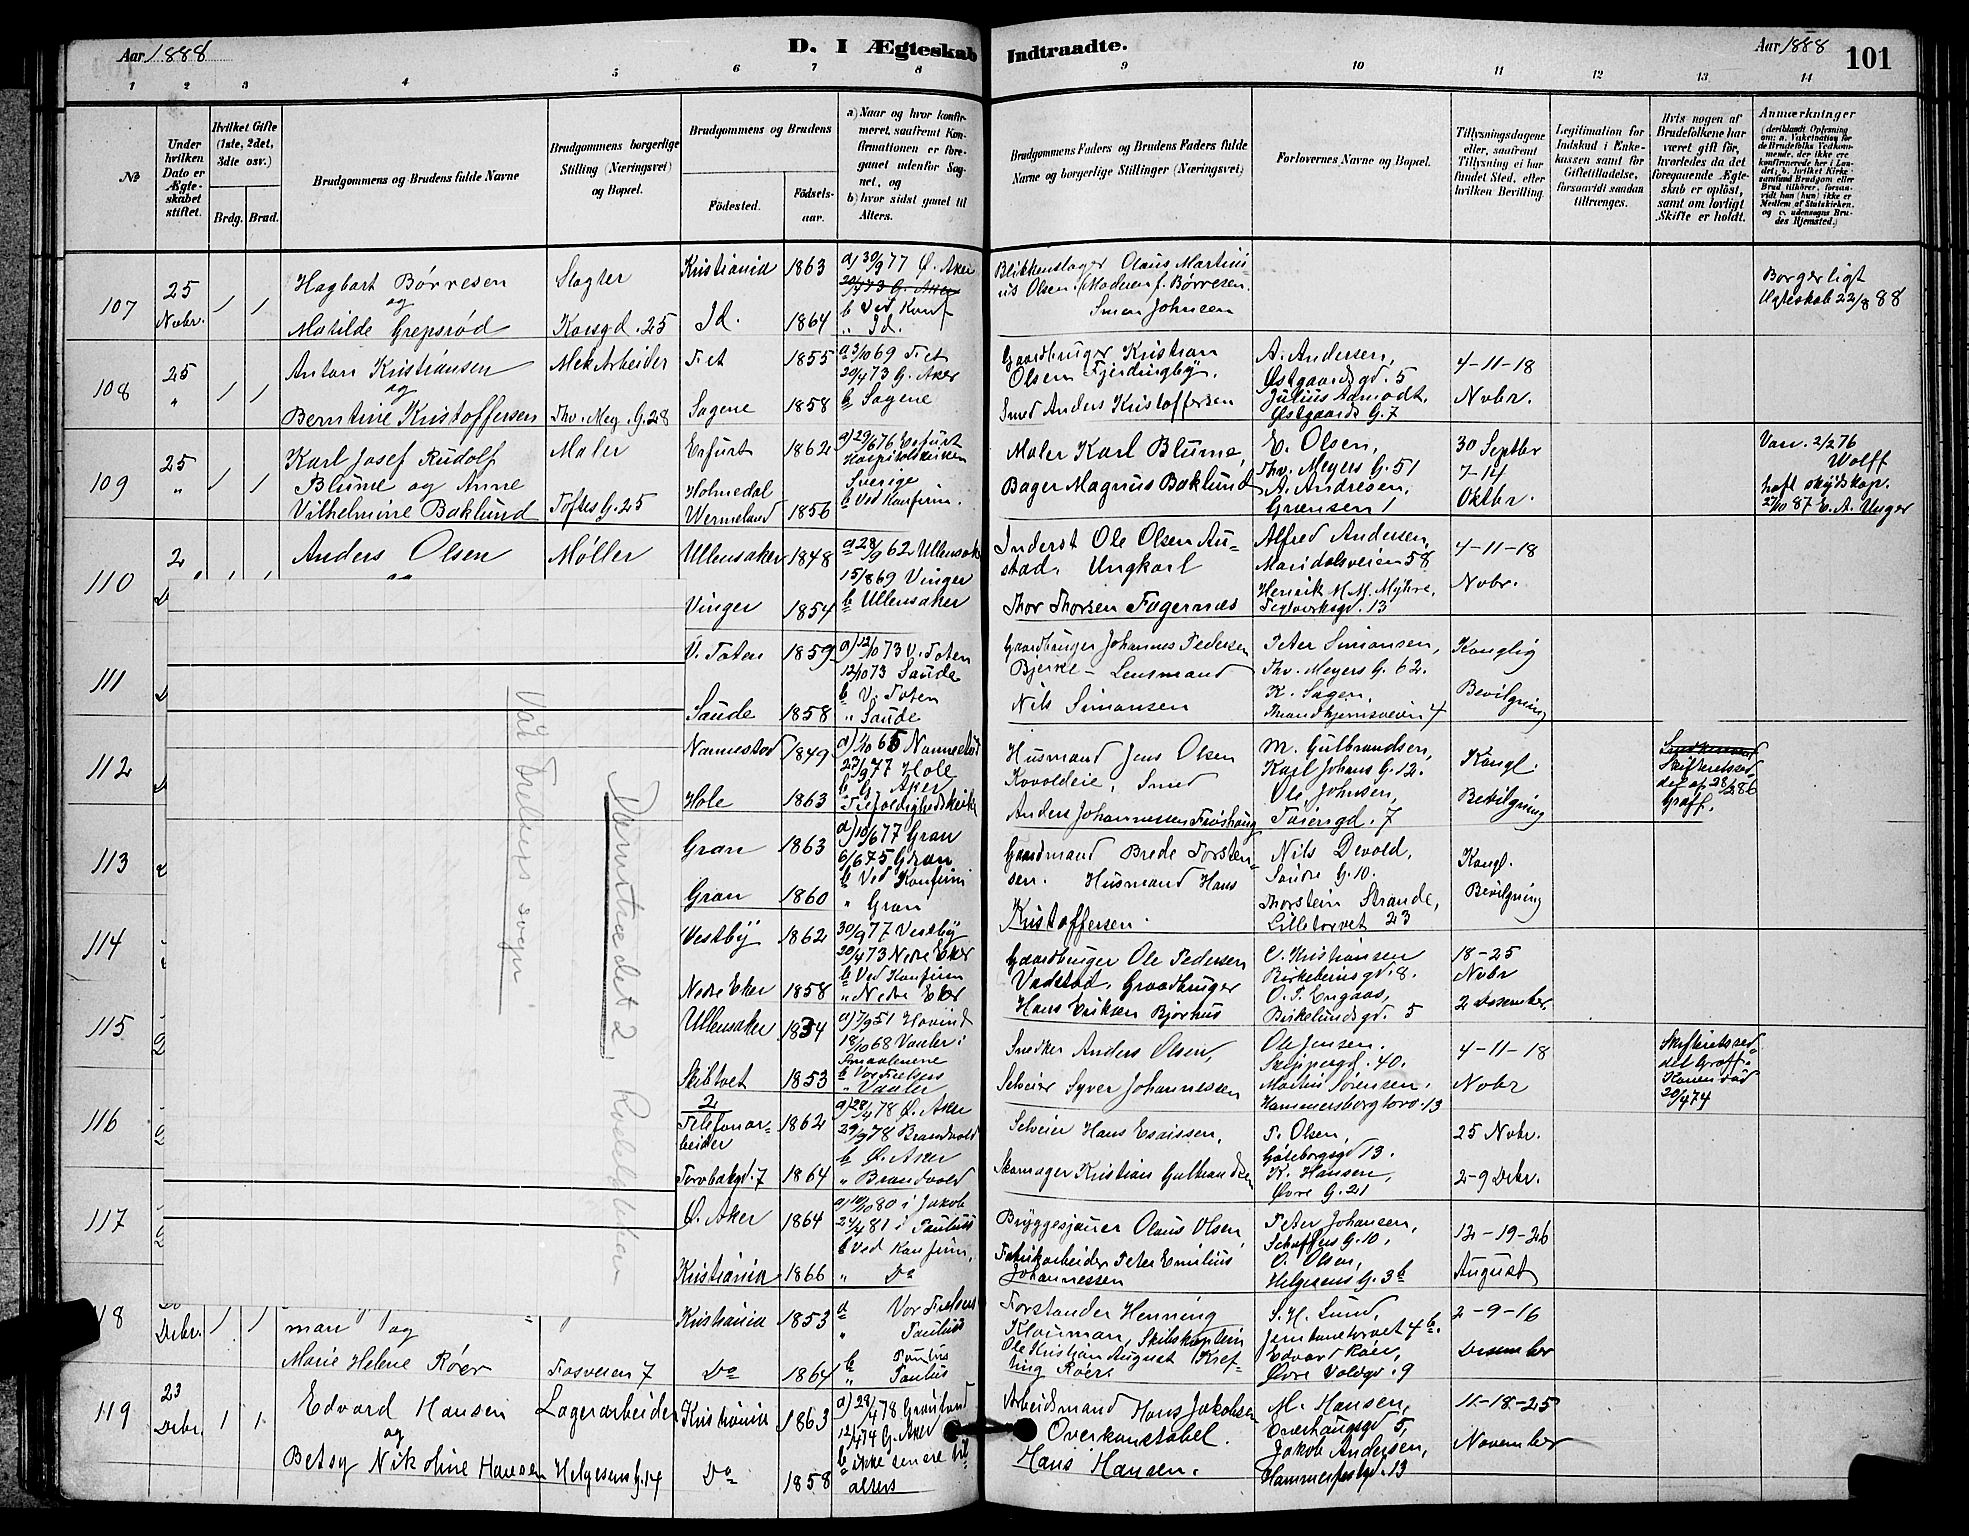 Aar 1888
D. I Ægteskab Indtraadte.
Aar 1888
101
1 2 3 4 5 6 7 8 9 10 11 12 13 14
No
Under hvilken Dato er Ægteskabet stiftet.
Hvilket Gifte (1ste, 2det, 3dte osv.)
Brdg. Brud.
Brudgommens og Brudens fulde Navne
Brudgommens borgerlige Stilling (Næringsvei) og Bopæl.
Brudgommens og Brudens
Födested.
Födsels-aar.
a) Naar og hvor konfirmeret, saafremt Konfirmationen er foreganet udenfor Sognet, og
b) hvor sidst ganet til Alters.
Brudgommens Faders og Brudens Faders fulde Navne og borgerlige Stillinger (Næringsvei)
Forlovernes Navne og Bopæl.
Tillysningsdagene eller, saafremt Tillysning ei har fundet Sted, efter hvilken Bevilling.
Legitimation for Indskud i Enkekassen samt for Giftetilladelse, forsaavidt saadan tiltrænges.
Hvis nogen af Brudefolkene har været gift før, hvorledes da det foregaaende Ægteskab er oplöst, samt om lovligt Skifte er holdt.
Anmærkninger
107
25 Nobr.
1 1
Hagbart Børresen
og
Matilde Grepsrød
Slagter
Korsgd. 25
Kristiania 1863
Id. 1864
a) 30/9 77 Ø. Aker
20/4 73 G. Aker
b Ved Konf
" Id.
Blikkenslager Olaus Martini-
us Olsen. Moderen f. Børresen.
Simen Johnsen
Borgerligt
Ægteskab 22/8 88
108
25
"
1 1
Anton Kristiansen
og
Berntine Kristoffersen
Mek Arbeider
Thv. Mey. G. 28
Fet 1855
Sagene 1858
a 3/10 69 Fet
20/4 73 G. Aker
b Sagene
Gaardbruger Kristian
Olsen Fjerdingby.
Smed Anders Kristoffersen
A. Andersen,
Østgaardsgd. 5
Julius Aamodt,
Østgaards G. 7
4-11-18
Nobr.
109
25
"
1 1
Karl Josef Rudolf
Blume og Anne
Vilhelmine Baklund
Maler
Toftes G. 25
Erfurt 1862
Holmedal
Wermeland 1856
a) 29/6 76 Erfurt
Hospitalskirken
Sverige
b Ved Konfirm.
Maler Karl Blume,
Bager Magnus Baklund
E. Olsen,
Thv. Meyers G. 51
A. Andresen,
Grænsen 1
30 Septbr
7-14
Oktbr.
Vacc. 2/2 76
Wolff
haft skydskop.
27/10 87 E. A. Unger
110
2
Anders Olsen
Møller
Ullensaker 1848
Vinger 1854
a 28/9 62 Ullensak
15/8 69 Vinger
b Ullensaker
Inderst Ole Olsen Au-
stad. Ungkarl
Thor Thorsen Fagernæs
Alfred Andersen,
Maridalsveien 58
Henrik M. M. Myhre,
Teglverksgd. 13
4-11-18
Nobr.
111
V. Toten 1859
Saude 1858
a) 12/10 73 V. Toten
12/10 73 Saude
b V. Toten
" Saude
Gaardbruger Johannes Pedersen
Bjerke - Lensmand
Nils Simonsen
Peter Simonsen,
Thv. Meyers G. 62.
K. Sagen,
Trondhjemsveien 4
Konglig
Bevilgning
112
Nannestad 1849
Hole 1863
a) 1/10 65 Nannestad
23/9 77 Hole
b G. Aker
" Trefoldighedskirke
Husmand Jens Olsen
Kovoldeie, Smed
Anders Johannessen Frøshaug
M. Gulbrandsen,
Karl Johans G. 12.
Ole Johnsen,
Tøiengd. 7
Kongl.
Bevilgning
Skifteretssed-
del af 28/2 86
Graff.
113
Gran 1863
Gran 1860
a) 10/6 77 Gran
6/6 75 Gran
b Ved Konfirm
" Gran
Gaardmand Brede Torsten-
sen. Husmand Hans
Kristoffersen.
Nils Devold,
Søndre G. 10.
Thorstein Strande,
Lilletorvet 23
Kongl.
Bevilgning
114
Vestby 1862
Nedre Eker 1858
30/9 77 Vestby
20/4 73 Nedre Eker
b Ved Konfirm
" Nedre Eker
Gaardbruger Ole Pedersen
Vadstad, Graadbruger
Hans Eriksen Bjørhus
C. Kristiansen
Birkebeinsgd. 8.
O. P. Engaas,
Birkelundsgd. 5
18-25
Nobr
2 Desember
115
Ullensaker 1834
Skibtvet 1853
a) 7/9 51 Hovind
18/10 68 Vaaler i
Smaalenene
b Vor Frelsers
" Vaaler
Snedker Anders Olsen,
Selveier Syver Johannessen
Ole Jensen.
Skippergd. 40.
Martin Sørensen,
Hammersborg torv. 13
4-11-18
Nobr
Skifteretssed-
del Graff.
Konen død
20/4 74
116
2
Telefonar-
beider 1862
Torvbakgd. 7 1864
a) 28/4 78 Ø. Aker
29/9 78 Brandvold
b Ø. Aker
" Brandvold
Selveier Hans Esaissen,
Skomager Kristian Gulbrandsen
T. Olsen,
Gøteborgsgd 13.
K. Hansen,
Øvre G. 21
25 Nobr.
2-9 Debr.
117
Ø. Aker 1864
Kristiania 1866
a) 10/10 80 i Jakob
24/4 81 i Paulus
b Ved Konfirm,
" Do
Bryggesjauer Olaus Olsen,
Fabrikarbeider Peter Emilius
Johannessen
Peter Johansen,
Schøffus G. 10,
O. Olsen,
Helgesens G. 3b
12-19-26
August
118
Debr.
1 1
man og
Marie Helene Røer
Fosveien 7
Kristiania 1853
Do 1864
a Vor Frelsers
" Paulus
b Paulus
" Paulus
Forstander Henning
Klouman, Skibskaptein
Ole Kristian August Kref-
ting Røer.
S. H. Lund,
Jernbanetorvet 4b.
Edvard Røer,
Øvre Voldgd. 9
2-9-16
Desember
119
23
Debr.
1 1
Edvard Hansen
og
Betsy Nikoline Hansen
Lagerarbeider
Helgesens G. 14
Kristiania 1863
Do 1858
a) 28/4 78 Grønland
12/4 74 G. Aker
b ikke senere til
alters
Arbeidsmand Hans Jakobsen
Overkonstabel.
Hans Hansen.
M. Hansen,
Jakob Andersen,
Hammerfestgd. 13
11-18-25
November
Vår Frelsers sogn